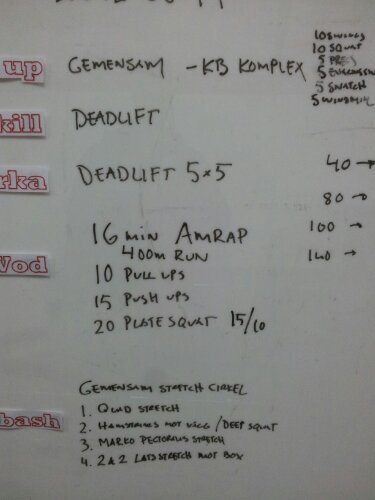 up GEMENSAM - KB KOMPLEX
10 SWINGS
10 SQUAT
5 PRES
5
5 SNATCH
5 WINDMILL
kill DEADLIFT
rka DEADLIFT 5x5
40 →
80 →
100 →
140 →
16 min AMRAP
Wod 400m RUN
10 PULL UPS
15 PUSH UPS
20 PLATE SQUAT 15/10
GEMENSAM STRETCH CIRKEL
bash 1. QUAD STRETCH
2. HAMSTRINGS MOT VÄGG / DEEP SQUAT
3. MARKO PECTORALIS STRETCH
4. 2 & 2 LATS STRETCH MOT BOX